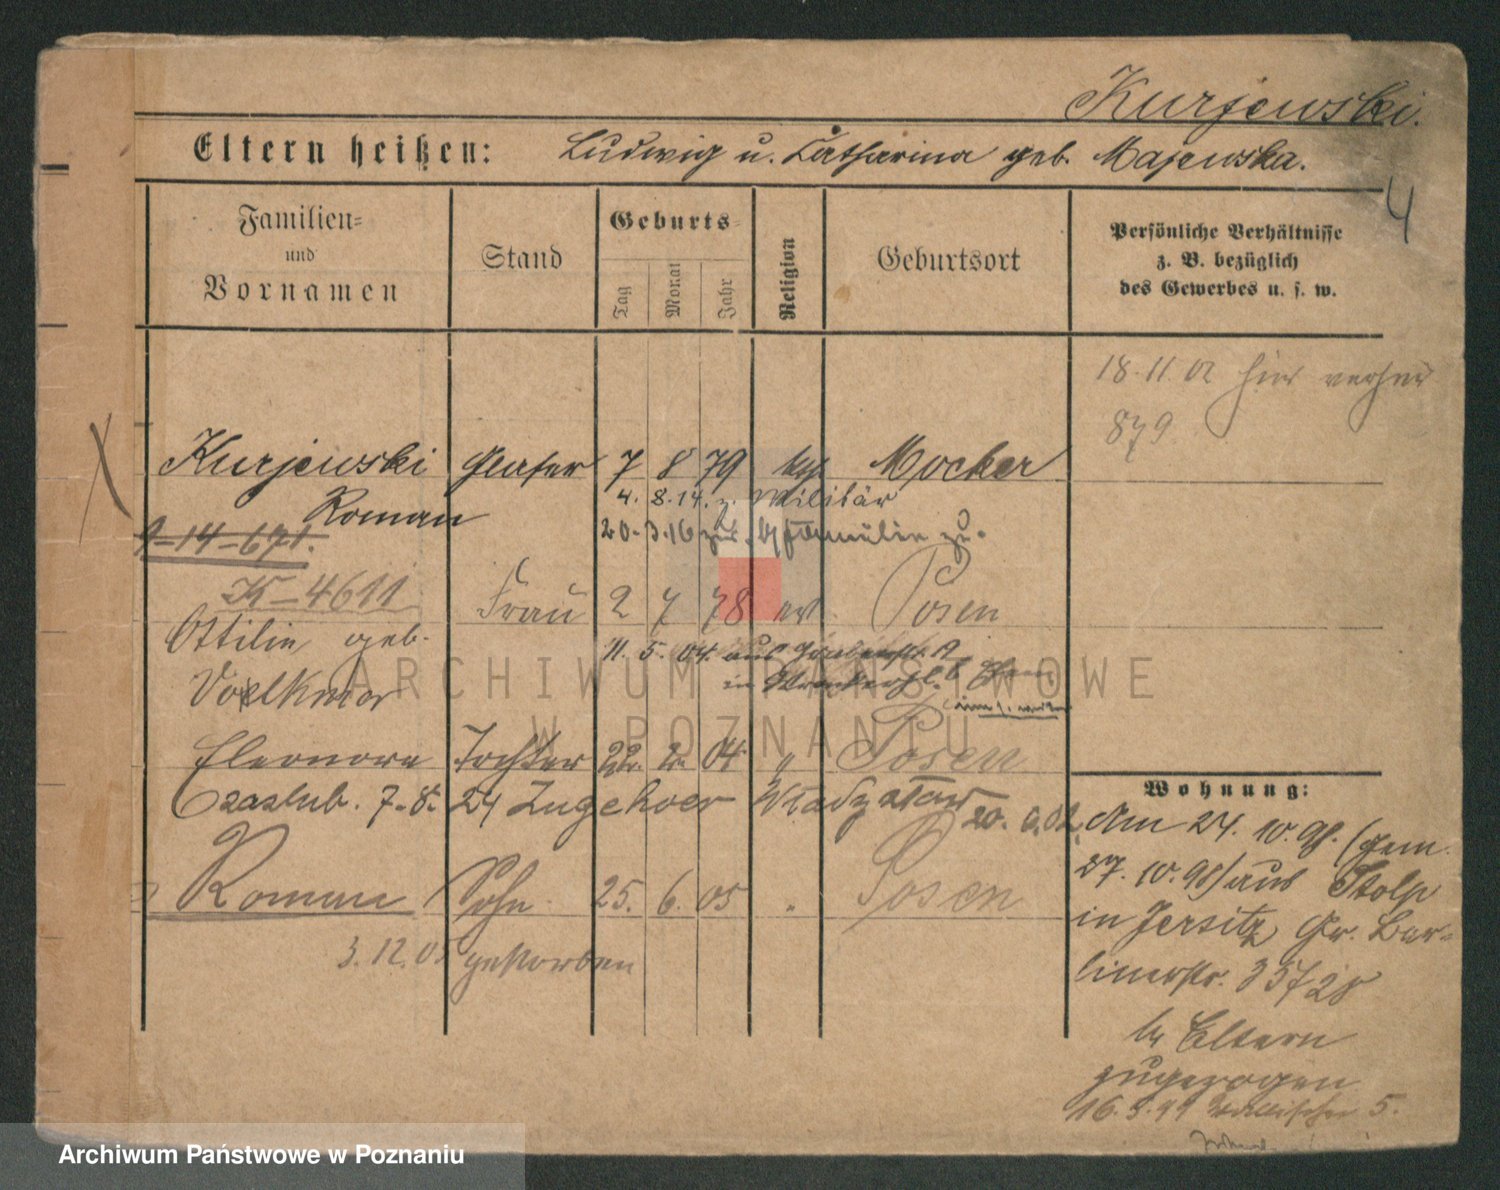 Kurjewski.
Eltern heißen: Ludwig u. Catharina geb. Majewska.
4
Familien-
und
Vornamen
Stand
Geburts-
Tag
Monat
Jahr
Religion
Geburtsort
Persönliche Verhältnisse
z. B. bezüglich
des Gewerbes u. s. w.
18.11.02 hier
879
Kurjewski Glaser 7 8 79 kath Mocker
Roman
4. 8.14. z. Militär
20.3.16 zur Familie zu.
9-14-671.
K-4611
Frau 2 7 78 ev Posen
Ottilie geb.
Voelkmar
11. 5. 04. aus
in
Eleonore Tochter 22. 2. 04. " Posen
Czaslub. 7.8. 24 Zugehoer Władysław
20. 02.
Roman Sohn 25. 6. 05 " Posen
3.12.05 gestorben
Wohnung:
Am 24. 10. 98. (gem.
27. 10. 98) aus Stolp
in Jersitz Gr. Ber-
linerstr. 35/28
by Eltern
zugezogen
16.3.99 Wallischei 5.
ARCHIWUM PAŃSTWOWE
W POZNANIU
Archiwum Państwowe w Poznaniu